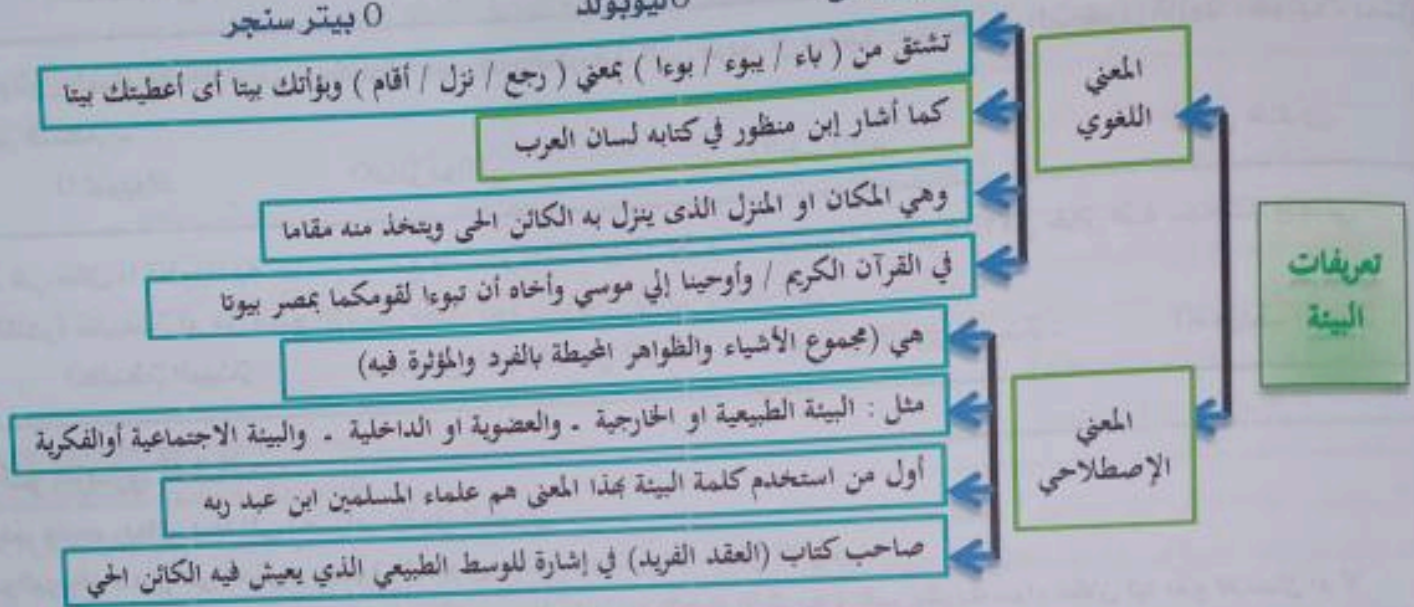 0 ليوبولد
0 بيتر سنجر
تعريفات
البيئة
المعني
اللغوي
تشتق من ( باء / يبوء / بوءا ) بمعني ( رجع / نزل / أقام ) وبؤأتك بيتا أى أعطيتك بيتا
كما أشار إبن منظور في كتابه لسان العرب
وهي المكان او المنزل الذى ينزل به الكائن الحى ويتخذ منه مقاما
في القرآن الكريم / وأوحينا إلي موسي وأخاه أن تبوءا لقومكما بمصر بيوتا
المعني
الإصطلاحي
هي (مجموع الأشياء والظواهر المحيطة بالفرد والمؤثرة فيه)
مثل : البيئة الطبيعية او الخارجية - والعضوية او الداخلية - والبيئة الاجتماعية أوالفكرية
أول من استخدم كلمة البيئة بهذا المعنى هم علماء المسلمين ابن عبد ربه
صاحب كتاب (العقد الفريد) في إشارة للوسط الطبيعي الذي يعيش فيه الكائن الحي